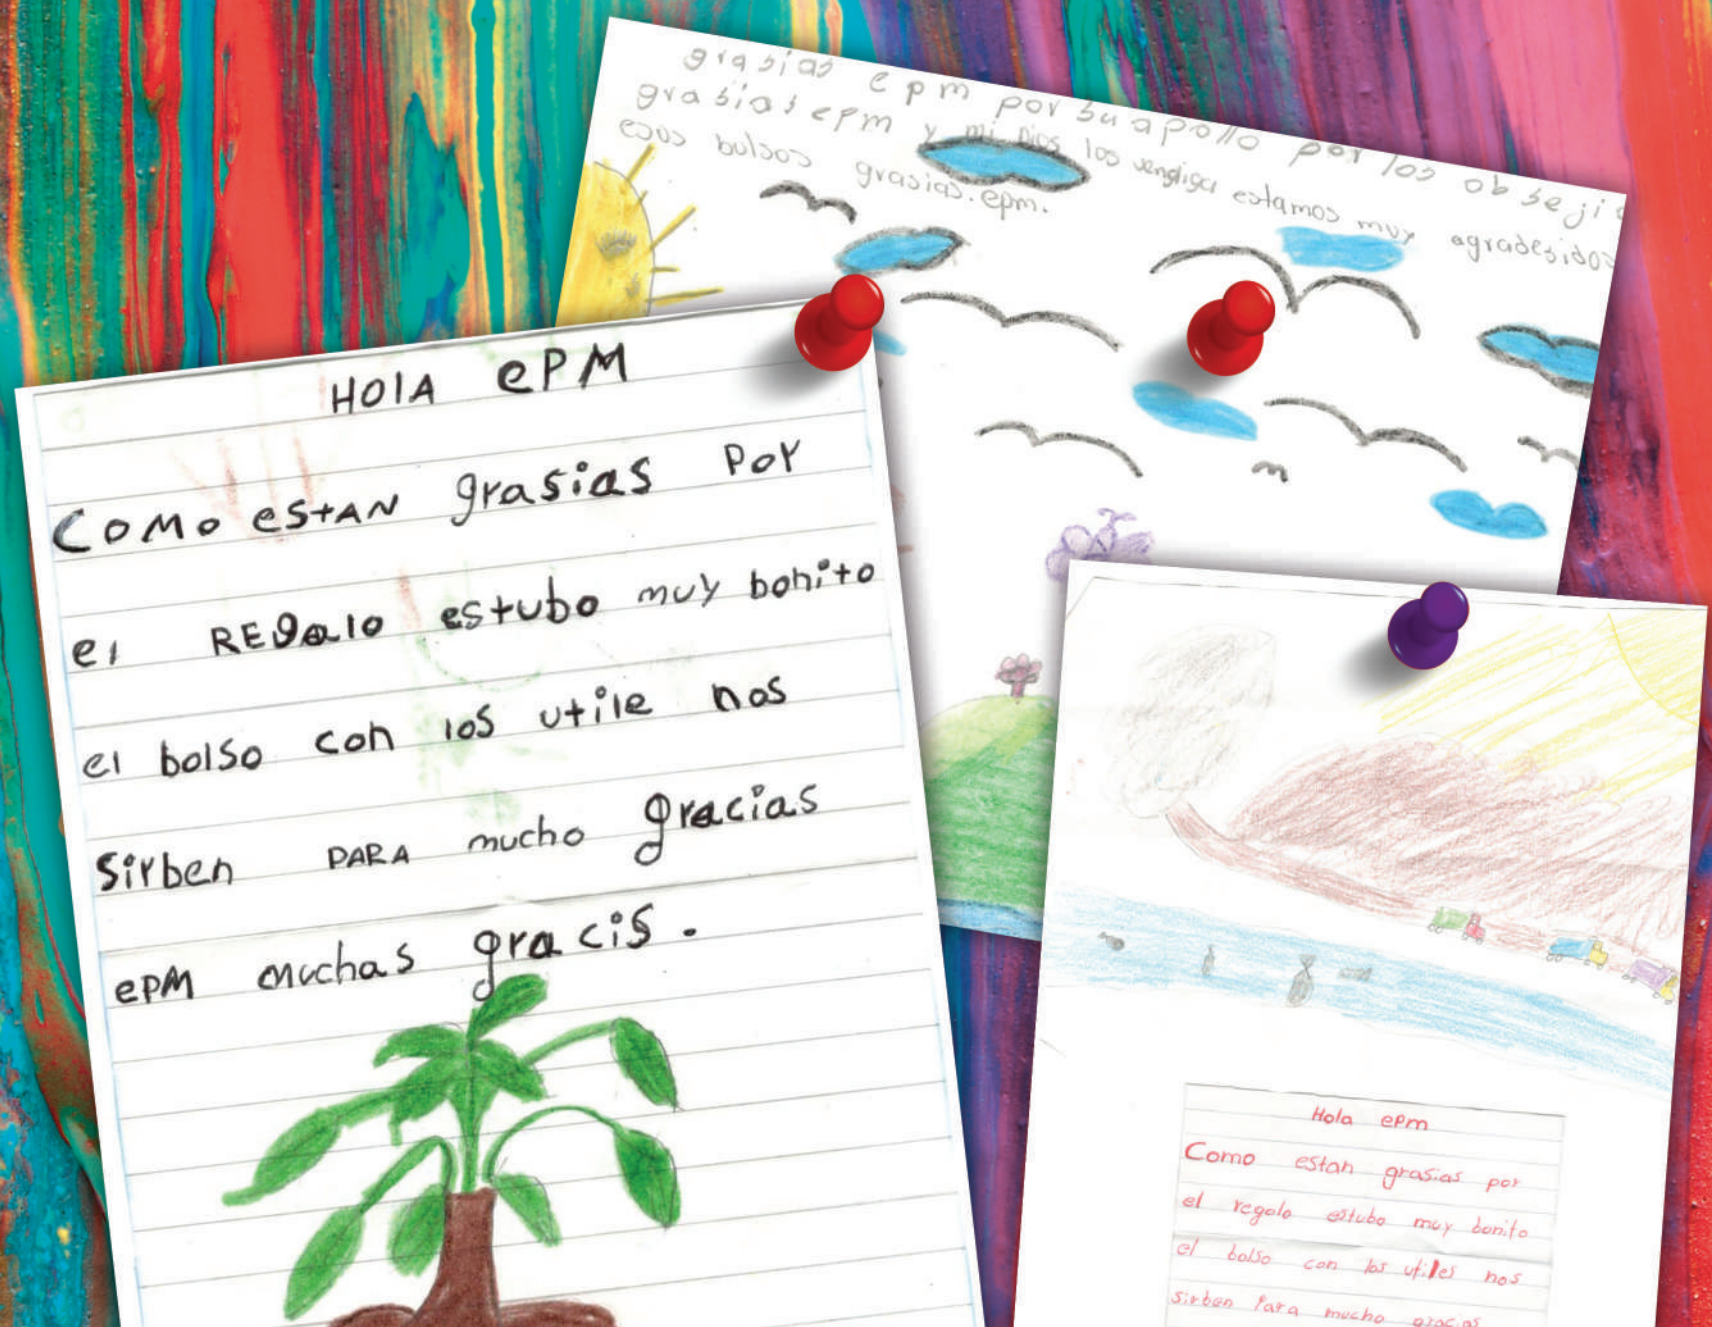 grasias epm por su apollo por los obseji
grasias epm y mi Dios los vendiga estamos muy agradesidos
esos bulsos grasias.epm.
HOlA ePM
COMO eStAN grasias Por
el REgalo estubo muy bonito
el bolso con los utile nos
Sirben PARA mucho gracias
ePM muchas gracis.
Hola ePm
Como estan grasias por
el regalo estubo muy bonito
el bolso con los utiles nos
sirben Para mucho gracias